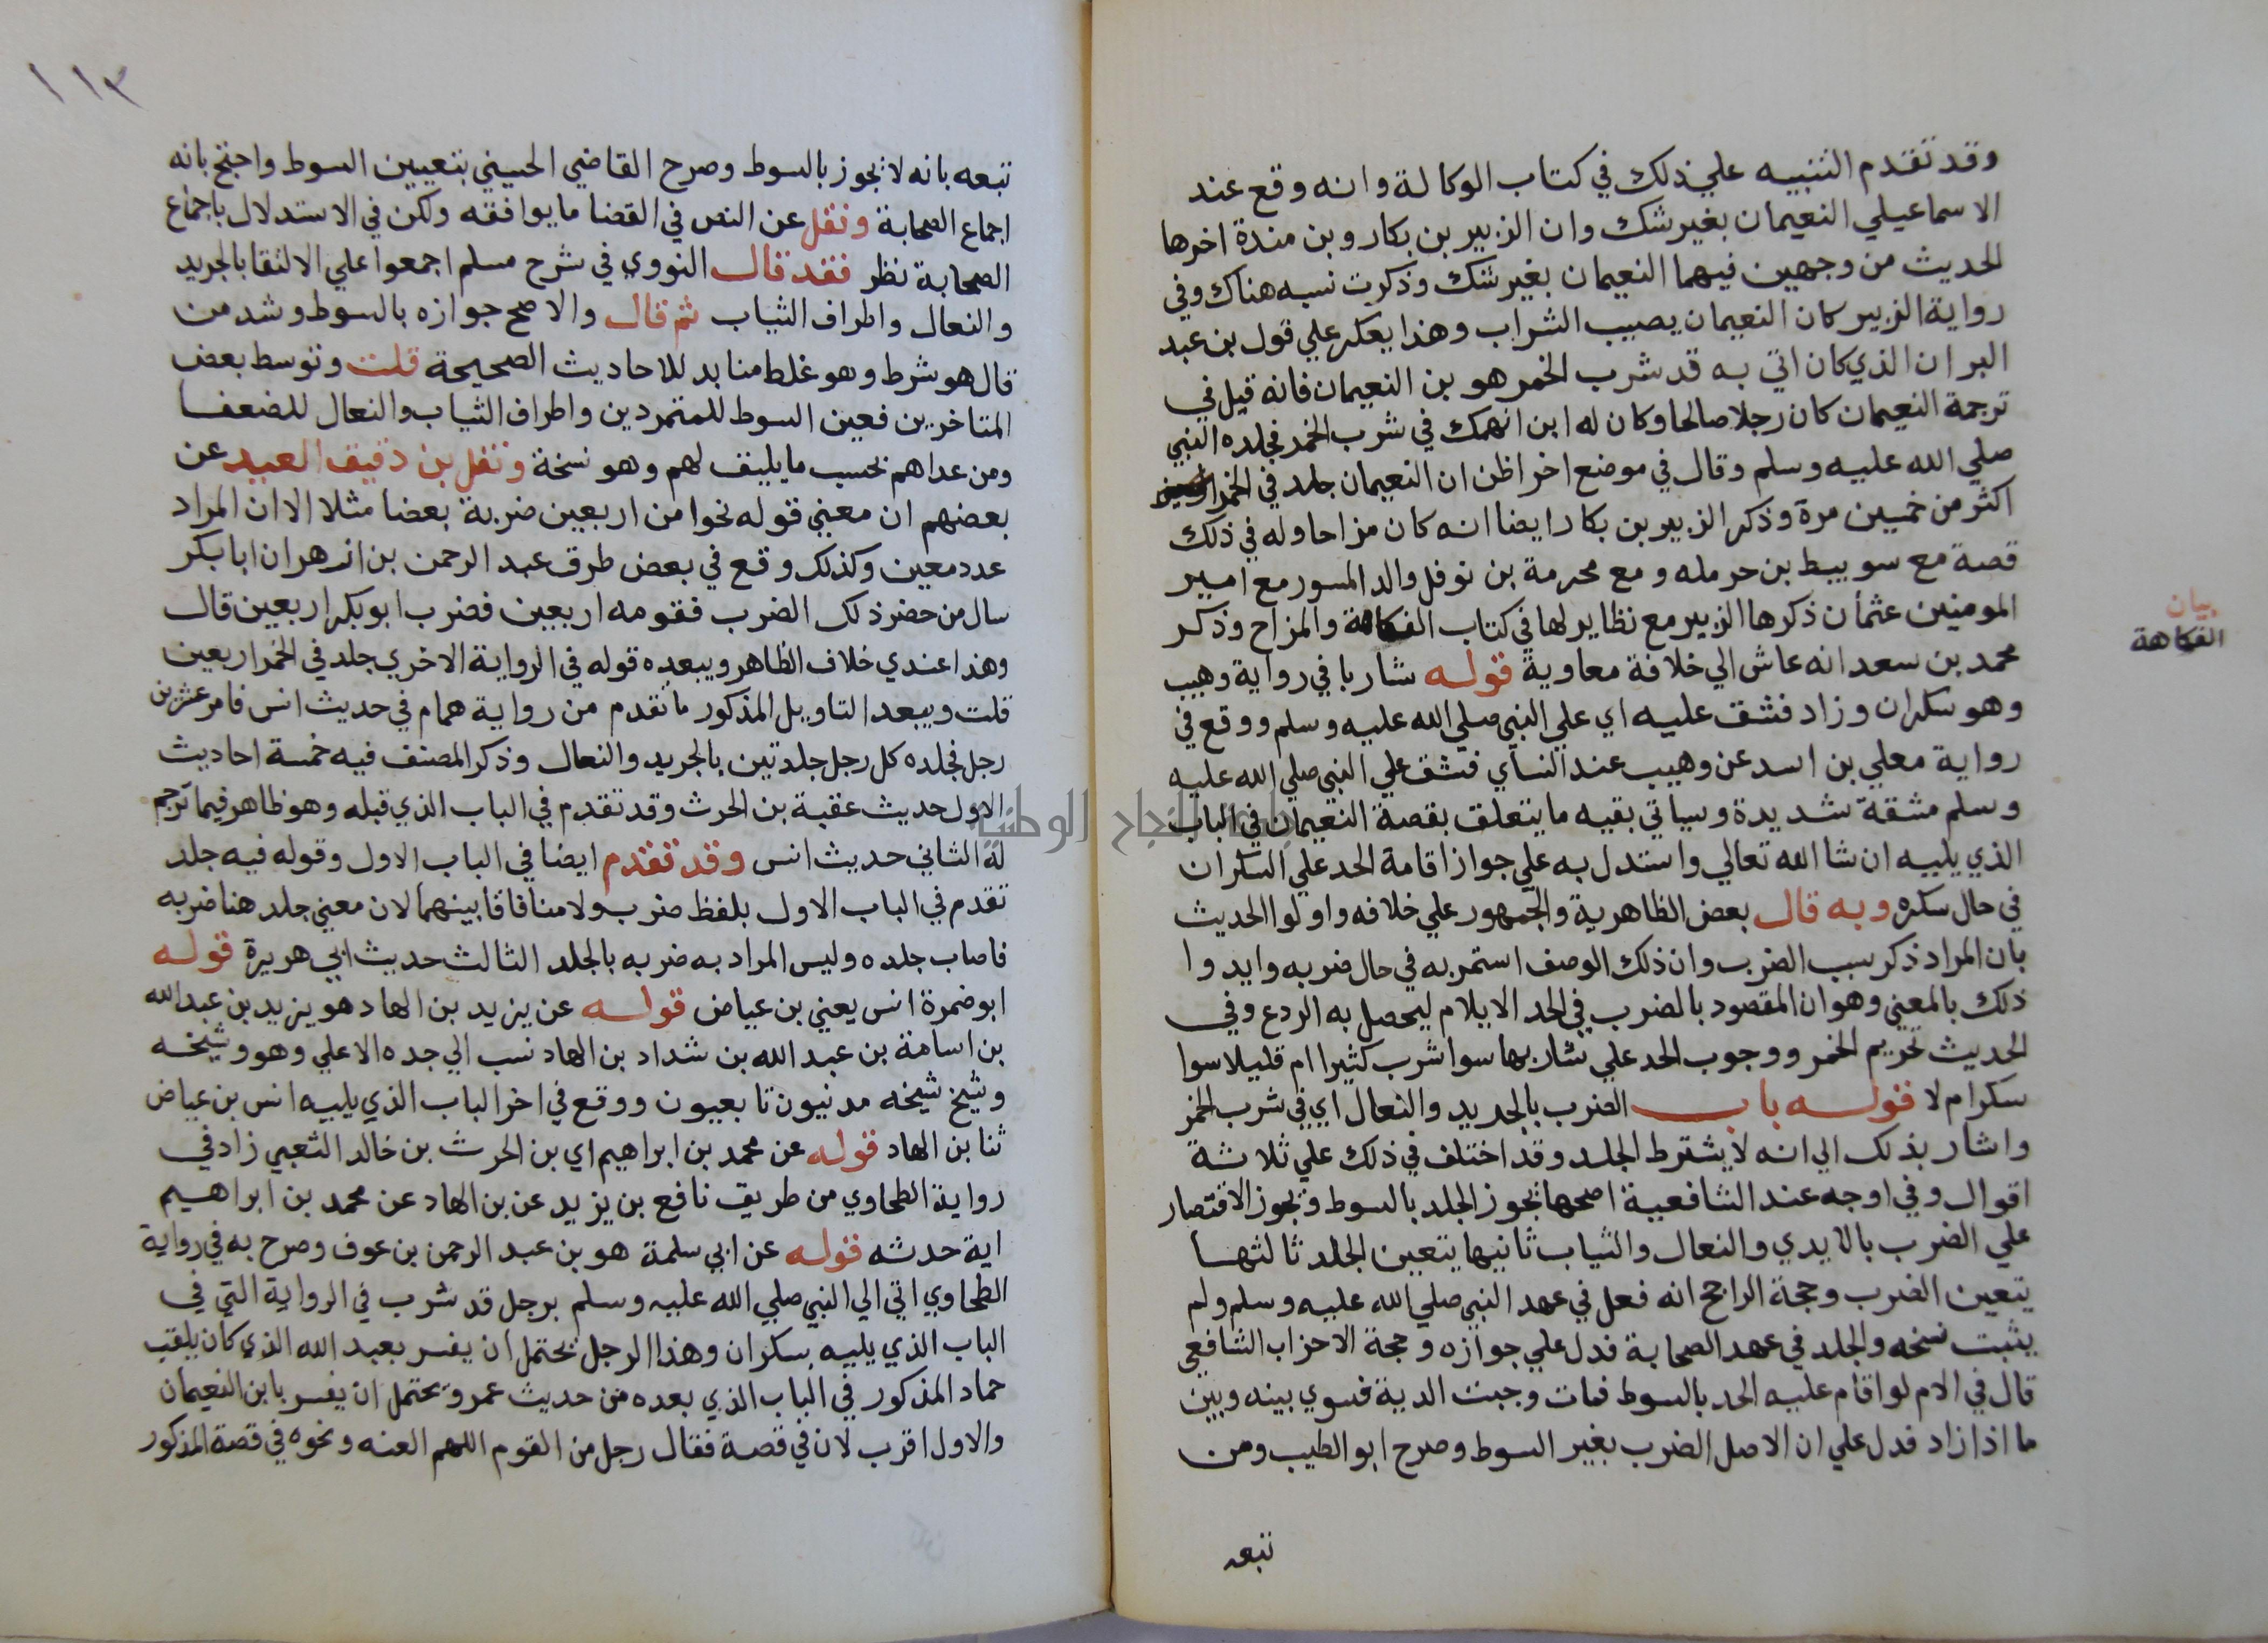 وقد تقدم التنبيه علي ذلك في كتاب الوكالة وانه وقع عند
الاسماعيلي النعيمان بغير شك وان الزبير بن بكار وبن مندة اخرجا
الحديث من وجهين فيهما النعيمان بغير شك وذكرت نسبه هناك وفي
رواية الزبير كان النعيمان يصيب الشراب وهذا يعكر علي قول بن عبد
البر ان الذي كان اتي به قد شرب الخمر هو بن النعيمان فانه قيل في
ترجمة النعيمان كان رجلا صالحا وكان له ابن انهمك في شرب الخمر فجلده النبي
صلي الله عليه وسلم وقال في موضع اخر اظن ان النعيمان جلد في الخمر
اكثر من خمسين مرة وذكر الزبير بن بكار ايضا انه كان مزاحا وله في ذلك
قصة مع سويبط بن حرمله ومع محرمة بن نوفل والد المسور مع امير
المومنين عثمان ذكرها الزبير مع نظاير لها في كتاب الفكاهة والمزاح وذكر
بيان
الفكاهة
محمد بن سعد انه عاش الي خلافة معاوية قوله شاربا في رواية وهيب
وهو سكران وزاد فشق عليه اي علي النبي صلي الله عليه وسلم ووقع في
رواية معلي بن اسد عن وهيب عند النساي فشق علي النبي صلي الله عليه
وسلم مشقة شديدة وسياتي بقيه ما يتعلق بقصة النعيمان في الباب
الذي يليه ان شا الله تعالي واستدل به علي جواز اقامة الحد علي السكران
في حال سكره وبه قال بعض الظاهرية والجمهور علي خلافه واولوا الحديث
بان المراد ذكر سبب الضرب وان ذلك الوصف استمر به في حال ضربه وايدوا
ذلك بالمعني وهو ان المقصود بالضرب في الحد الايلام ليحصل به الردع وفي
الحديث تحريم الخمر ووجوب الحد علي شاربها سوا شرب كثيرا ام قليلا سوا
سكر ام لا قوله باب الضرب بالجريد والنعال اي في شرب الخمر
واشار بذلك الي انه لا يشترط الجلد وقد اختلف في ذلك علي ثلاثة
اقوال وفي اوجه عند الشافعية اصحها تجوز الجلد بالسوط وتجوز الاقتصار
علي الضرب بالايدي والنعال والثياب ثانيها يتعين الجلد ثالثها
يتعين الضرب وحجة الراجح انه فعل في عهد النبي صلي الله عليه وسلم ولم
يثبت نسخه والجلد في عهد الصحابة فدل علي جوازه وحجة الاخر اب الشافعي
قال في الام لو اقام عليه الحد بالسوط فمات وجبت الدية فسوي بينه وبين
ما اذا زاد فدل علي ان الاصل الضرب بغير السوط وصرح ابو الطيب ومن
تبعه
١١٣
تبعه بانه لا تجوز بالسوط وصرح القاضي الحسيني بتعيين السوط واحتج بانه
اجماع الصحابة ونقل عن النص في القضا ما يوافقه ولكن في الاستدلال باجماع
الصحابة نظر فقد قال النووي في شرح مسلم اجمعوا علي الالتقا بالجريد
والنعال واطراف الثياب ثم قال والاصح جوازه بالسوط وشد من
قال هو شرط وهو غلط منابد للاحاديث الصحيحة قلت وتوسط بعض
المتاخرين فعين السوط للمتمردين واطراف الثياب والنعال للضعفا
ومن عداهم بحسب ما يليق لهم وهو نسخة ونقل بن دقيق العيد عن
بعضهم ان معني قوله نحوا من اربعين ضربة بعضا مثلا الا ان المراد
عدد معين وكذلك وقع في بعض طرق عبد الرحمن بن ازهر ان ابا بكر
سال من حضر ذلك الضرب فقومه اربعين فضرب ابو بكر اربعين قال
وهذا عندي خلاف الظاهر ويبعده قوله في الرواية الاخري جلد في الخمر اربعين
قلت ويبعد التاويل المذكور ما تقدم من رواية همام في حديث انس فامر عشرين
رجل فجلده كل رجل جلدتين بالجريد والنعال وذكر المصنف فيه خمسة احاديث
الاول حديث عقبة بن الحرث وقد تقدم في الباب الذي قبله وهو ظاهر فيما ترجم
له الثاني حديث انس وقد تقدم ايضا في الباب الاول وقوله فيه جلد
تقدم في الباب الاول بلفظ ضرب ولا منافاقا بينهما لان معني جلد هنا ضربه
فاصاب جلده وليس المراد به ضربه بالجلد الثالث حديث ابي هريرة قوله
ابو ضمرة انس يعني بن عياض قوله عن يزيد بن الهاد هو يزيد بن عبد الله
بن اسامة بن عبد الله بن شداد بن الهاد نسب الي جده الاعلي وهو وشيخه
وشيخ شيخه مدنيون تابعيون ووقع في اخر الباب الذي يليه انس بن عياض
ثنا بن الهاد قوله عن محمد بن ابراهيم اي بن الحرث بن خالد التعبي زاد في
رواية الطحاوي من طريق نافع بن يزيد عن بن الهاد عن محمد بن ابراهيم
اية حدثه قوله عن ابي سلمة هو بن عبد الرحمن بن عوف وصرح به في رواية
الطحاوي اتي الي النبي صلي الله عليه وسلم برجل قد شرب في الرواية التي في
الباب الذي يليه بسكران وهذا الرجل يحتمل ان يفسر بعبد الله الذي كان يلقب
حماد المذكور في الباب الذي بعده من حديث عمر ويحتمل ان يفسر بابن النعيمان
والاول اقرب لان في قصة فقال رجل من القوم اللهم العنه ونحوه في قصة المذكور
جامعة النجاح الوطنية